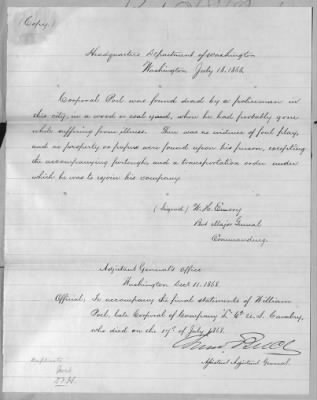 (Copy.)
Headquarters Department of Washington
Washington July 18, 1868.
Corporal Poel was found dead by a policeman in
this city, in a wood or coal yard, where he had probably gone
while suffering from illness. There was no evidence of foul play,
and no property or papers were found upon his person, excepting
the accompanying furlough, and a transportation order under
which he was to rejoin his company.
(Signed) W. H. Emory
Bvt Major General
Commanding.
Adjutant General's Office
Washington Oct. 11. 1868.
Official: To accompany the final statements of William
Poel, late Corporal of Company "L" 6th U.S. Cavalry,
who died on the 17th of July 1868.
Assistant Adjutant General.
Duplicate